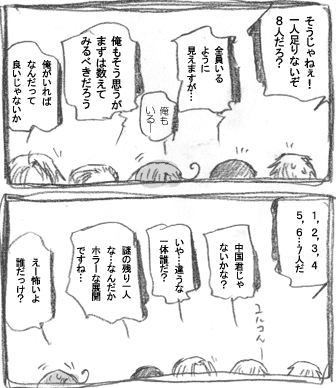 そうじゃねぇ！
一人足りないぞ
８人だろ？
全員いる
ように
見えますが…
俺も
いるー
俺もそう思うが
まずは数えて
みるべきだろう
俺がいれば
なんだって
良いじゃないか
１，２，３，４
５，６…７人だ
中国君じゃ
ないかな？
いや…違うな
一体誰だ？
謎の残り一人
な…なんだか
ホラーな展開
ですね…
えー怖いよ
誰だっけ？